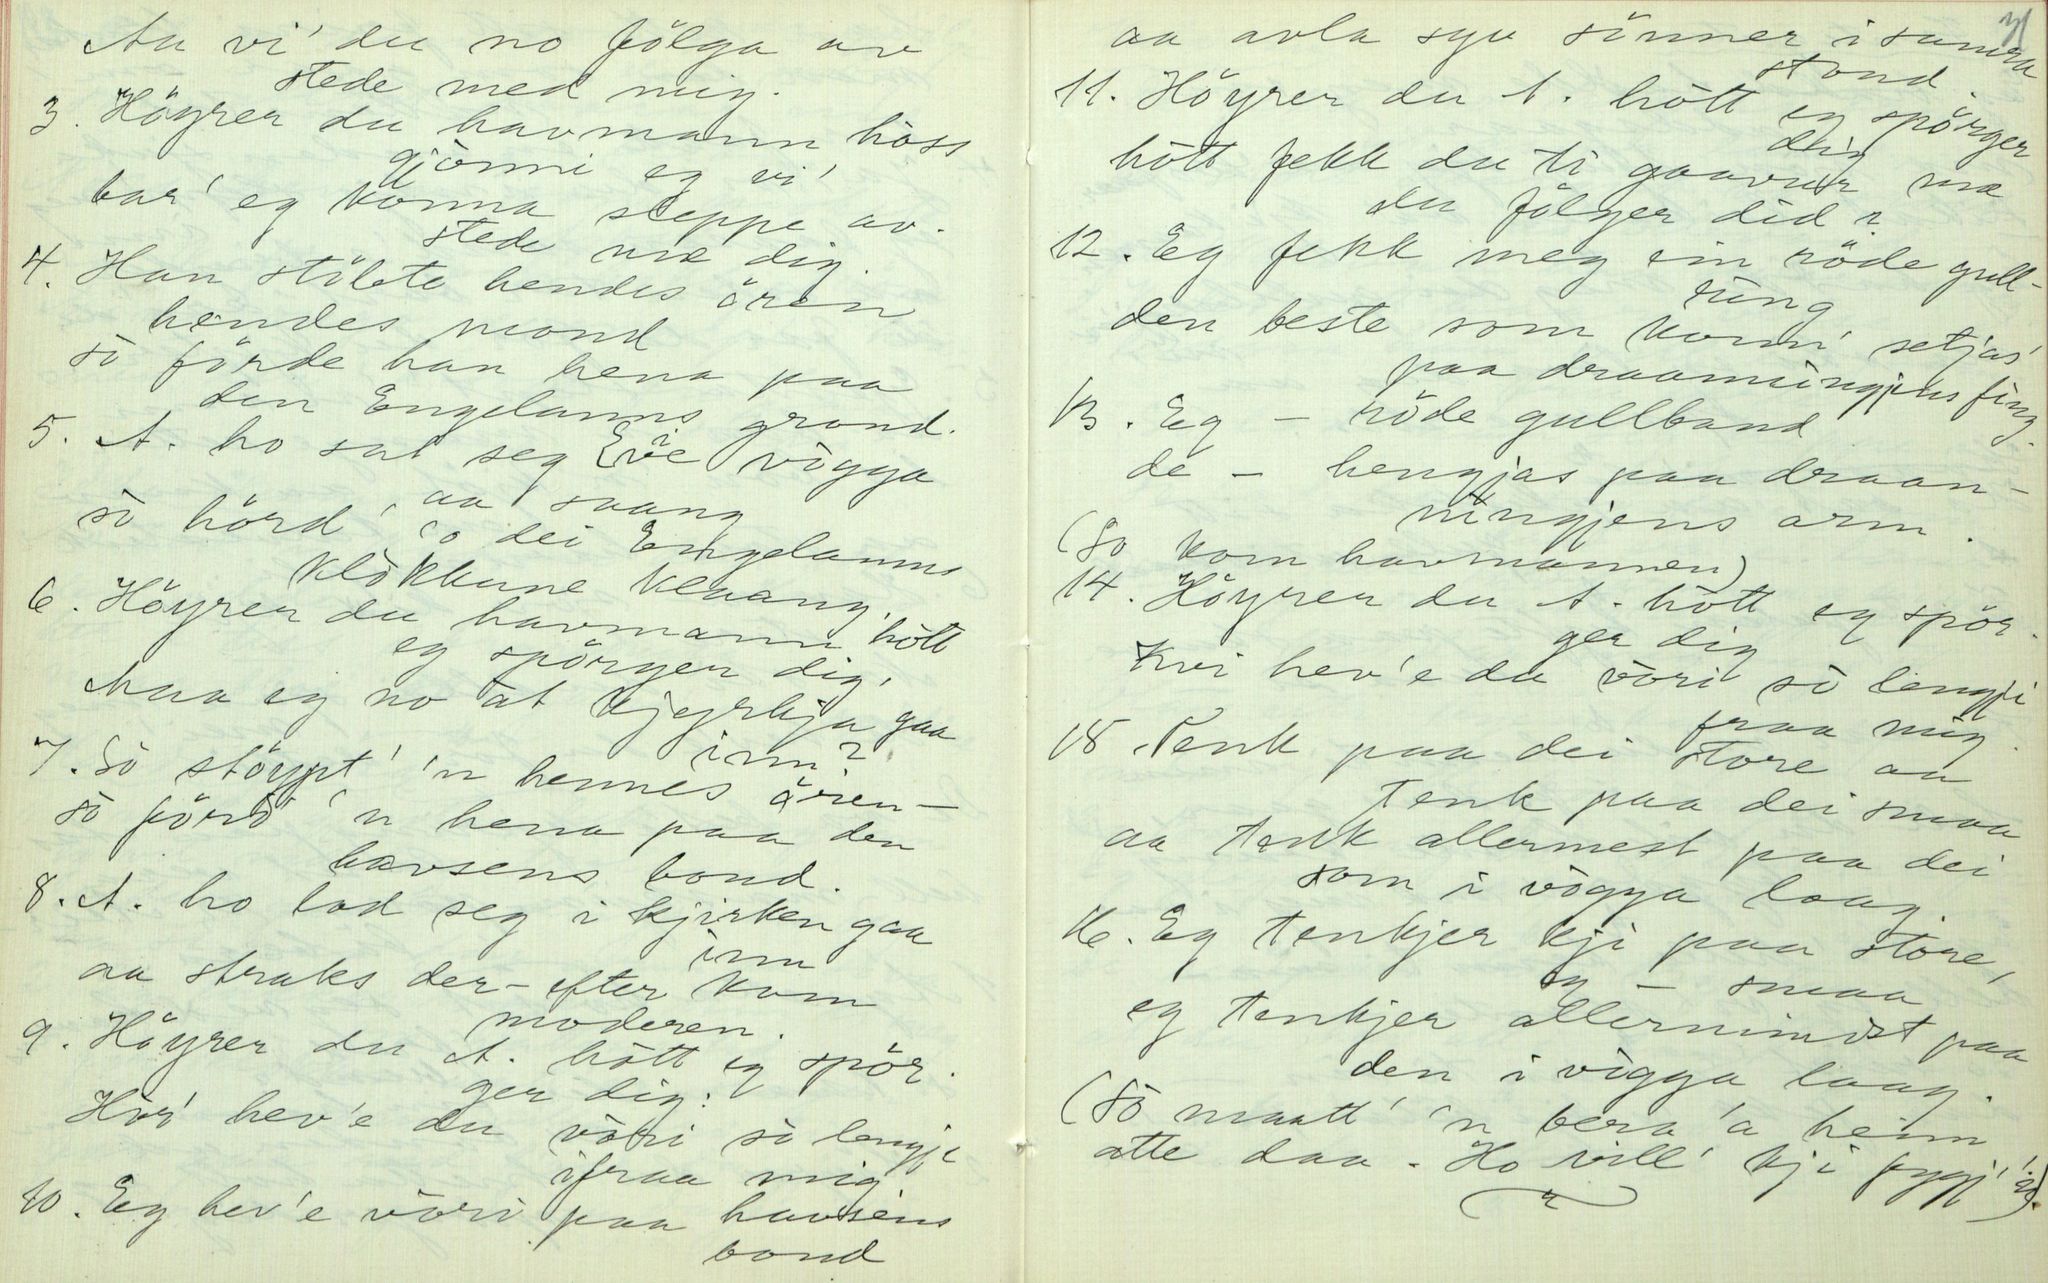 Aa vi' du no fölga av
stede med mig.
3. Höyrer du havmann höss
gjönni eg vi'
bar' eg könna sleppe av.
stede me dig.
4. Han stölete hendes ören
hendes mond
sò förde han hena paa
den Engelanns grond.
5. A. ho sat seg ve vögga
aa saang
sò hörd' 'o dei Engelanns
klòkkune klaang.
6. Höyrer du havmann hött
eg spörger dig,
Maa eg no åt kjyrkja gaa
inn?
7. Sò stöypt' 'n hennes ören –
sò förd' 'n hena paa den
havsens bond.
8. A. ho lod seg i kjirken gaa
inn
aa straks der-efter kom
moderen.
9. Höyrer du A. hött eg spör.
ger dig:
Hòr' hev'e du vòri sò lengje
ifraa mig
10. Eg hev'e vòri paa havsens
bond
31
aa avla syv sönner i samma
stond.
11. Höyrer du A. hött eg spörger
dig
hött fekk du ti gaavur me
du fölger did?
12. Eg fekk meg ein röde gull-
ring
den beste som konn' setjas'
paa draanningjens fing.
13. Eg – röde gullband
de – hengjas paa draan-
ningjens arm.
(So kom havmannen)
14. Höyrer du A. hött eg spör.
ger dig
Kvi hev'e du vòri sò lengji
fraa mig.
15. Tenk paa dei store aa
tenk paa dei smaa
aa tenk allermest paa dei
som i vògga laag.
16. Eg tenkjer kji paa store,
eg – smaa
eg tenkjer allerminst paa
den i vògga laag.
(Sò maatt' 'n bera 'a heim
atte daa. Ho vill' kji fygj' 'n).